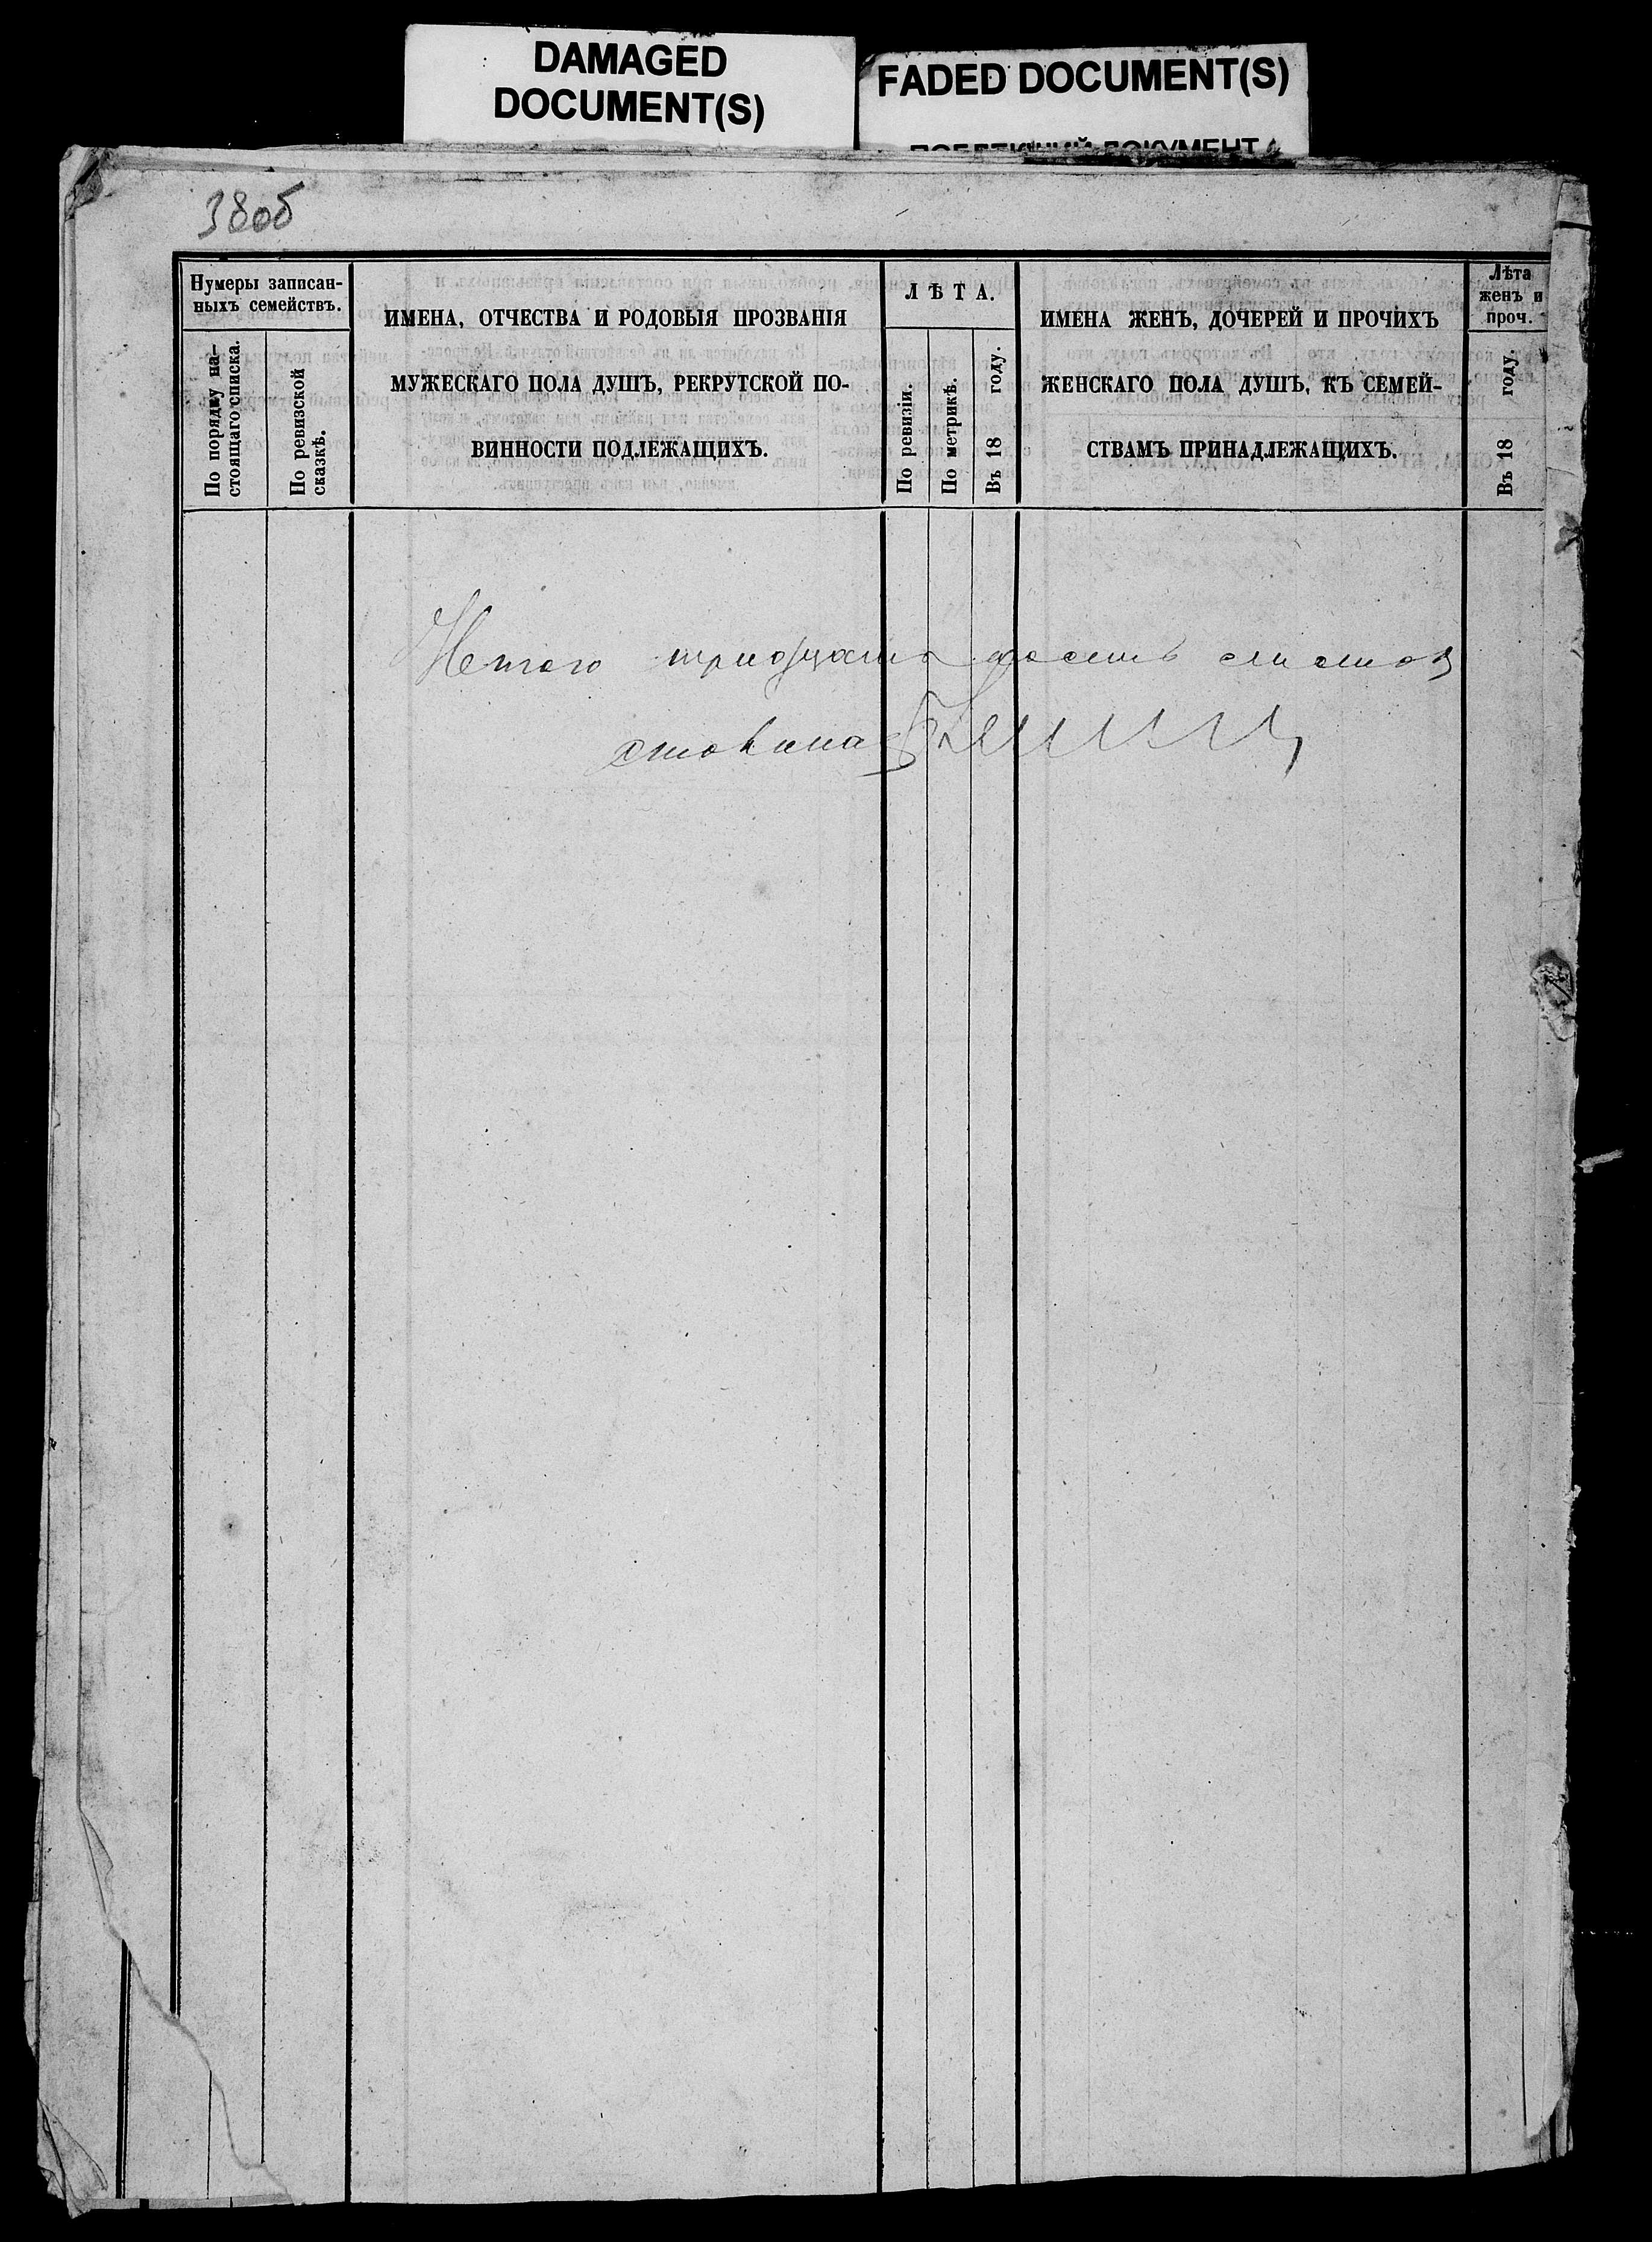 DAMAGED
DOCUMENT(S)
FADED DOCUMENT(S)
38об
Нумеры записан-
ныхъ семействъ.
По порядку на-
стоящаго списка.
По ревизской
сказкѣ.
ИМЕНА, ОТЧЕСТВА И РОДОВЫЯ ПРОЗВАНІЯ
МУЖЕСКАГО ПОЛА ДУШЪ, РЕКРУТСКОЙ ПО-
ВИННОСТИ ПОДЛЕЖАЩИХЪ.
ЛѢТА.
По ревизіи.
По метрикѣ.
Въ 18 году.
ИМЕНА ЖЕНЪ, ДОЧЕРЕЙ И ПРОЧИХЪ
ЖЕНСКАГО ПОЛА ДУШЪ, КЪ СЕМЕЙ-
СТВАМЪ ПРИНАДЛЕЖАЩИХЪ.
Лѣта
женъ и
проч.
Въ 18 году.
Итого тридцать восемь листов